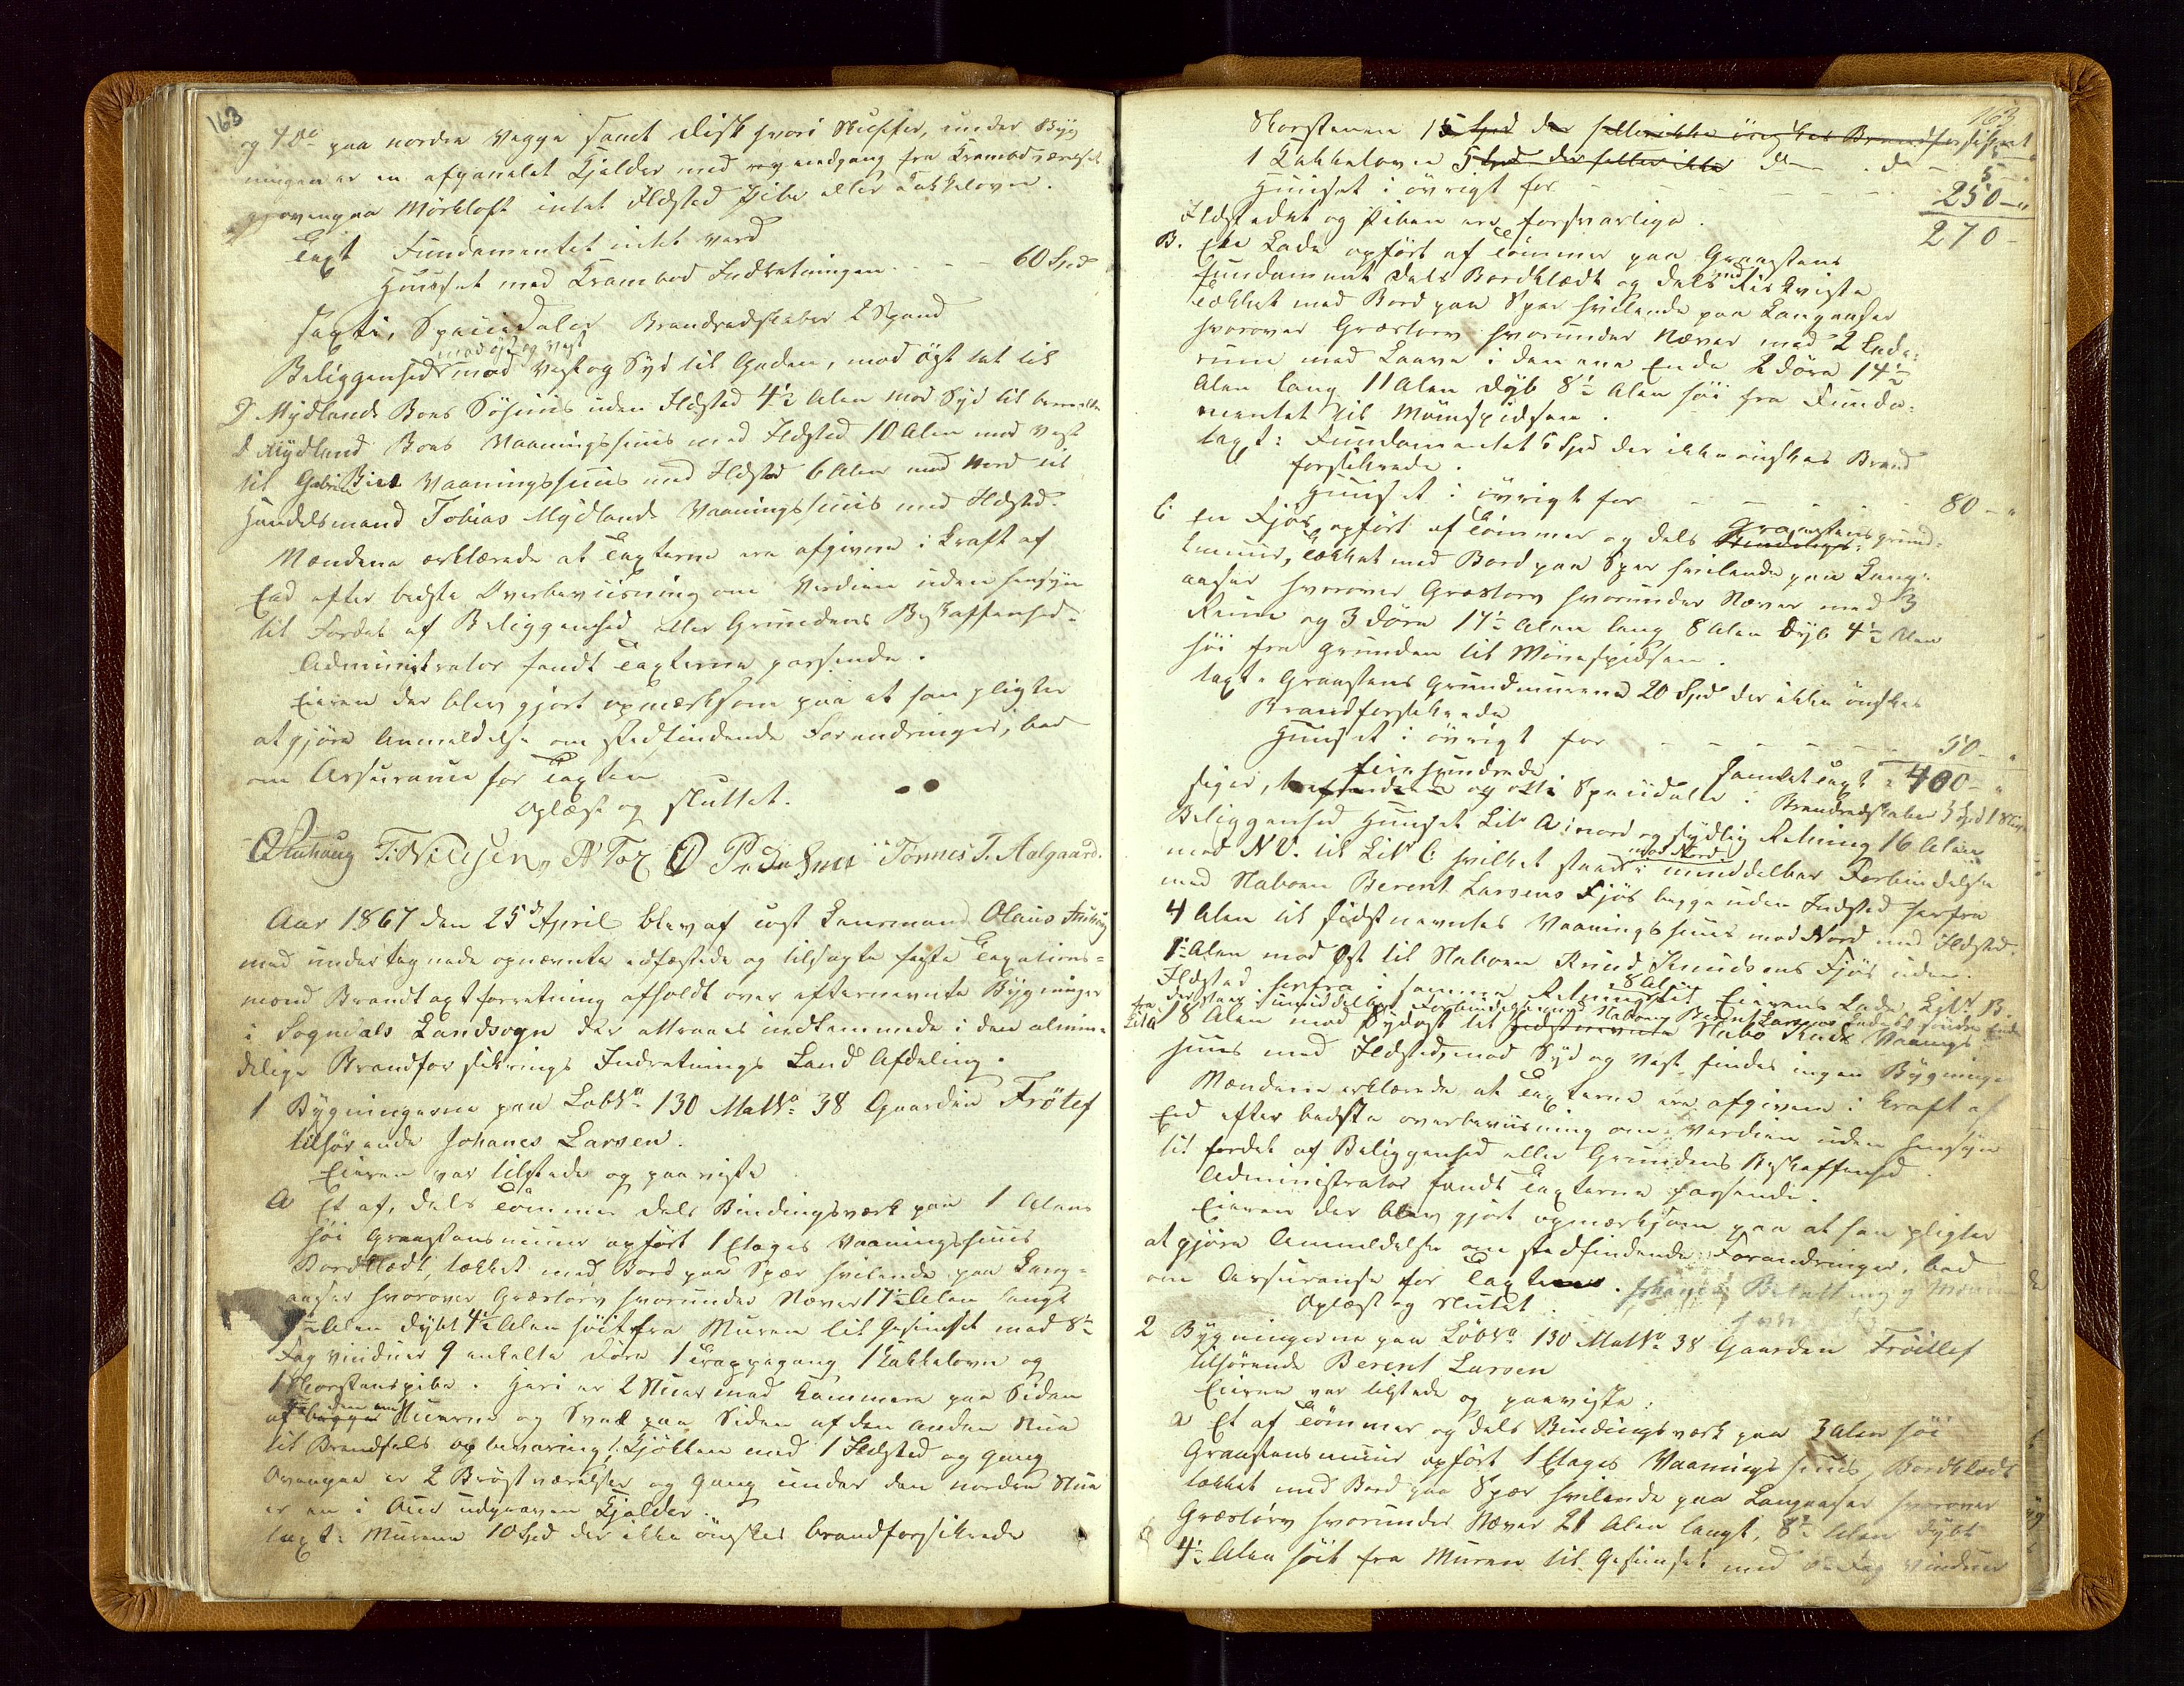 163
og 4 do paa nordre Vegge samt Disk hvori Skuffer, under Byg
ningen er en afpanelet Kjelder med nedgang fra Krambodværelset
ovenpaa Mörkloft intet Ildsted Pibe eller Kakkelovn.
Taxt Fundamentet intet værd
Huuset med Krambod Indretningen - - 60 Spd
sexti, Speciedaler Brandredskaber 2 Spand
mod öst og vest
Beliggenhed mod Vest og Syd til Gaden, mod Öst tæt til
D Mydlands Boes Söhuus uden Ildsted 4½ Alen mod Syd til bemeldte
D Mydland Boes Vaaningshuus med Ildsted 10 Alen mod Vest
til Vaaningshuus med Ildsted 6 Alen mod Nord til
Handelsmand Tobias Mydlands Vaaningshuus med Ildsted.
Mændene erklærede at Taxterne ere afgivne i Kraft af
Eed efter bedste Overbeviisning om Værdien uden hensyn
til Fordel af Beliggenhed eller Grundens Beskaffenhed.
Administrator fandt Taxterne passende.
Eieren der blev gjort opmærksom paa at han pligter
at gjöre Anmeldelse om stedfindende Forandringer, bad
om Assurance for Taxten
Oplæst og sluttet.
OStuhaug T. Nilsen, Tönnes T. Aalgaard.
Aar 1867 den 25de April blev af const Lensmand Olaus Stuhaug
med undertegnede opnævnte edfæstede og tilsagte faste Taxations=
mænd Brandtaxtforretning afholdt over efternævnte Bygninger
i Sogndals Landsogn der attraaes indlemmede i den almin=
delige Brandforsikrings Indretnings Land Afdeling.
1 Bygningerne paa Löbno 130 Matno 38 Gaarden Frötlef
tilhörende Johanes Larsen.
Eieren var tilstede og paaviste
A Et af, dels Tömmer dels Bindingsværk paa 1 Alens
höi Graastensmuur opfört 1 Etages Vaaningshuus
Bordklædt, tækket med Bord paa Spær hvilende paa Lang=
aaser hvorover Græstorv hvorunder Næver 17½ Alen langt
Alen dybt 4½ Alen höit fra Muren til Gesimset med 8½
Fag vinduer 9 enkelte Döre 1 Trappegang 1 Kakkelovn og
1 Skorstenspibe. Heri er 2 Stuer med Kammere paa Siden
af begge Stuerne og Sval paa Siden af den anden Stue
til Brændfels opbevaring, 1 Kjökken med 1 Ildsted og Gang
Ovenpaa er 2 Bröstværelser og Gang under den nordre Stue
er en i Aur udgraven Kjelder.
Taxt: Murene 10 Spd der ikke önskes brandforsikrede
163
Skorstenen 15 Spd der hellerikke önskes Brandforsikret
1 Kakkelovn 5 Spd der heller ikke do do - 5 - "
Huuset i övrigt for - - - - 250 - "
270 -
Ildstedet og Piben ere forsvarlige.
B. Een Lade opfört af Tömmer paa Graastens
Fundament dels Bordklædt og dels med Riskviste
tækket med Bord paa Spær hvilende paa Langaaser
hvorover Græstorv hvorunder Næver med 2 Lade=
rum med Laave i den ene Ende 2 döre 14½
Alen lang 11 Alen dyb 8½ Alen höi fra Funda=
mentet til Mönespidsen.
Taxt: Fundamentet 5 Spd der ikke önskes Brand
forsikrede.
Huuset i övrigt for - - - 80 - "
C. En Fjös opfört af Tömmer og dels Graastensgrund=
muur, tækket med Bord paa Spær hvilende paa Lang=
aaser hvorover Græstorv hvorunder Næver med 3
Rum og 3 döre 17½ Alen lang 8 Alen dyb 4½ Alen
höi fra grunden til Mönespidsen.
Taxt. Graastens Grundmurene 20 Spd der ikke önskes
Brandforsikrede
Huuset i övrigt for - - - - - 50 - "
Samlet Taxt = 400 - "
siger, firehundrede Speciedaler: Brandredskaber
Beliggenhed Huuset Litr A i nord og sydlig Retning 16 Alen
mod NV. til Litr C hvilket staar mod Nord i umiddelbar Forbindelse
med Naboen Berent Larsens Fjös begge uden Ildsted herfra
4 Alen til sidstnævntes Vaaningshuus mod Nord med Ildsted.
Alen mod Öst til Naboen Knud Knudsens Fjös uden
Ildsted herfra i samme Retning 8 Alen til Eierens Lade Litr B.
der staar i umiddelbar Forbindelse med Naboen Berent Larsens Lade
fra Lit a 18 Alen mod Sydost til Sidstnævnte Nabo Vaanings
huus med Ildsted, mod Syd og Vest findes ingen Bygninge
Mændene erklærede at Taxterne ere afgivne i Kraft af
Eed efter bedste overbeviisning om Værdien uden hensyn
til fordel af Beliggenhed eller Grundens Beskaffenhed.
Administrator fandt Taxterne passende.
Eieren der blev gjort opmærksom paa at han pligter
at gjöre Anmeldelse om stedfindende Forandringer, bad
om Assuranse for Taxterne.
Oplæst og sluttet.
2 Bygningerne paa Löbno 130 Matno 38 Gaarden Fröitlef
tilhörende Berent Larsen
Eieren var tilstede og paaviste:
a Et af Tömmer og dels Bindingsværk paa 3 Alen höi
Graastensmuur opfört 1 Etages Vaaningshuus, Bordklædt
tækket med Bord paa Spær hvilende paa Langaaser hvorover
Græstörv hvorunder Næver 21 Alen langt, 8½ Alen Dybt
4½ Alen höit fra Muren til Gesimset med Fag vinduer